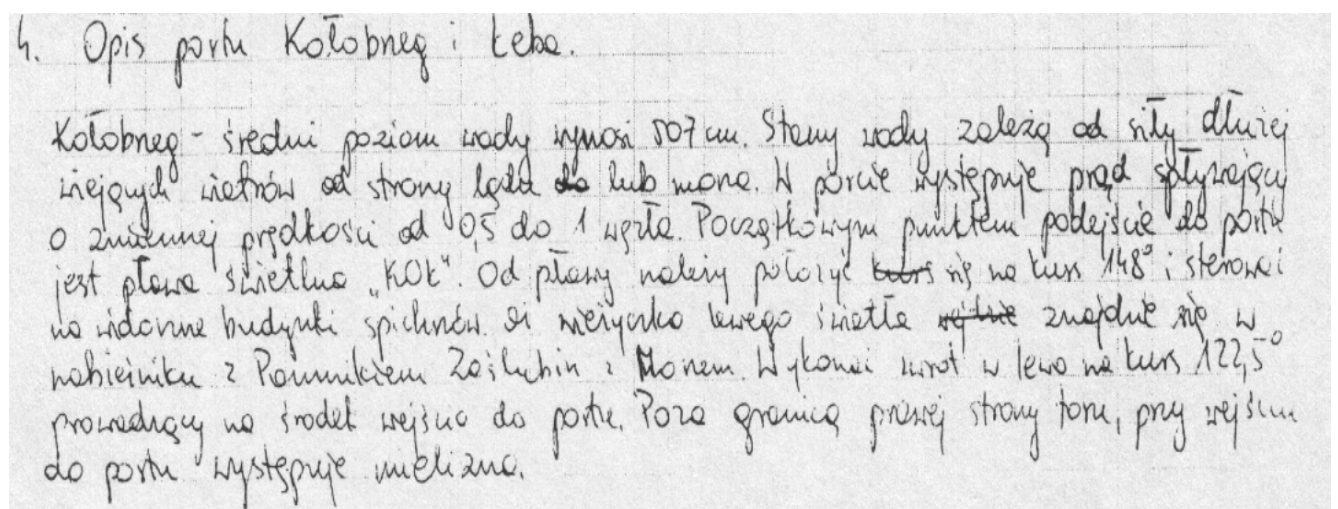 4. Opis portu Kołobrzeg i Łeba.
Kołobrzeg - średni poziom wody wynosi 507 cm. Stany wody zależą od siły dłużej
wiejących wiatrów od strony lądu do lub morza. W porcie występuje prąd spływający
o zmiennej prędkości od 0,5 do 1 węzła. Początkowym punktem podejścia do portu
jest pława świetlna „KOŁ". Od pławy należy położyć kurs się na kurs 148° i sterować
na widoczne budynki spichrzów. wieżyczka lewego światła wejście znajdzie się w
nabieżniku z Pomnikiem Zaślubin z Morzem. Wykonać zwrot w lewo na kurs 122,5°
prowadzący na środek wejścia do portu. Poza granicą prawej strony toru, przy wejściu
do portu występuje mielizna.